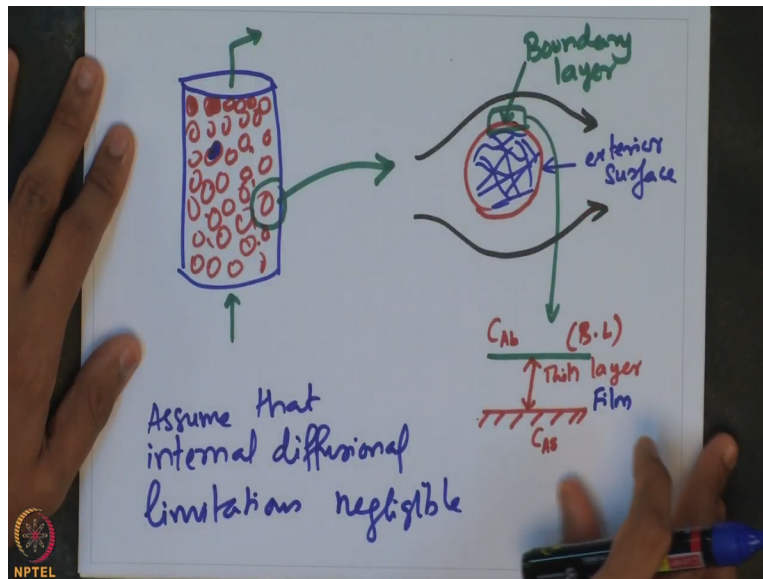 Boundary
layer
exterior
surface
CAb (B.L)
Thin layer
Film
CAs
Assume that
internal diffusional
limitations negligible
NPTEL